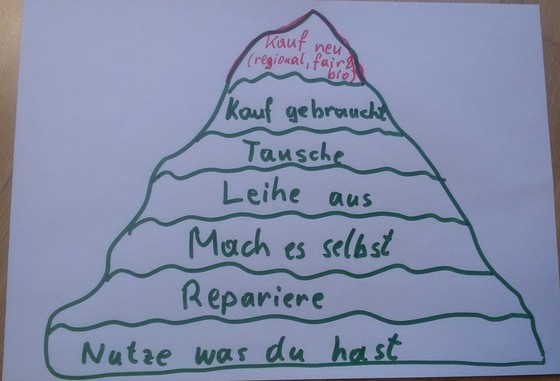 Kauf neu
(regional, fair &
bio)
Kauf gebraucht
Tausche
Leihe aus
Mach es selbst
Repariere
Nutze was du hast